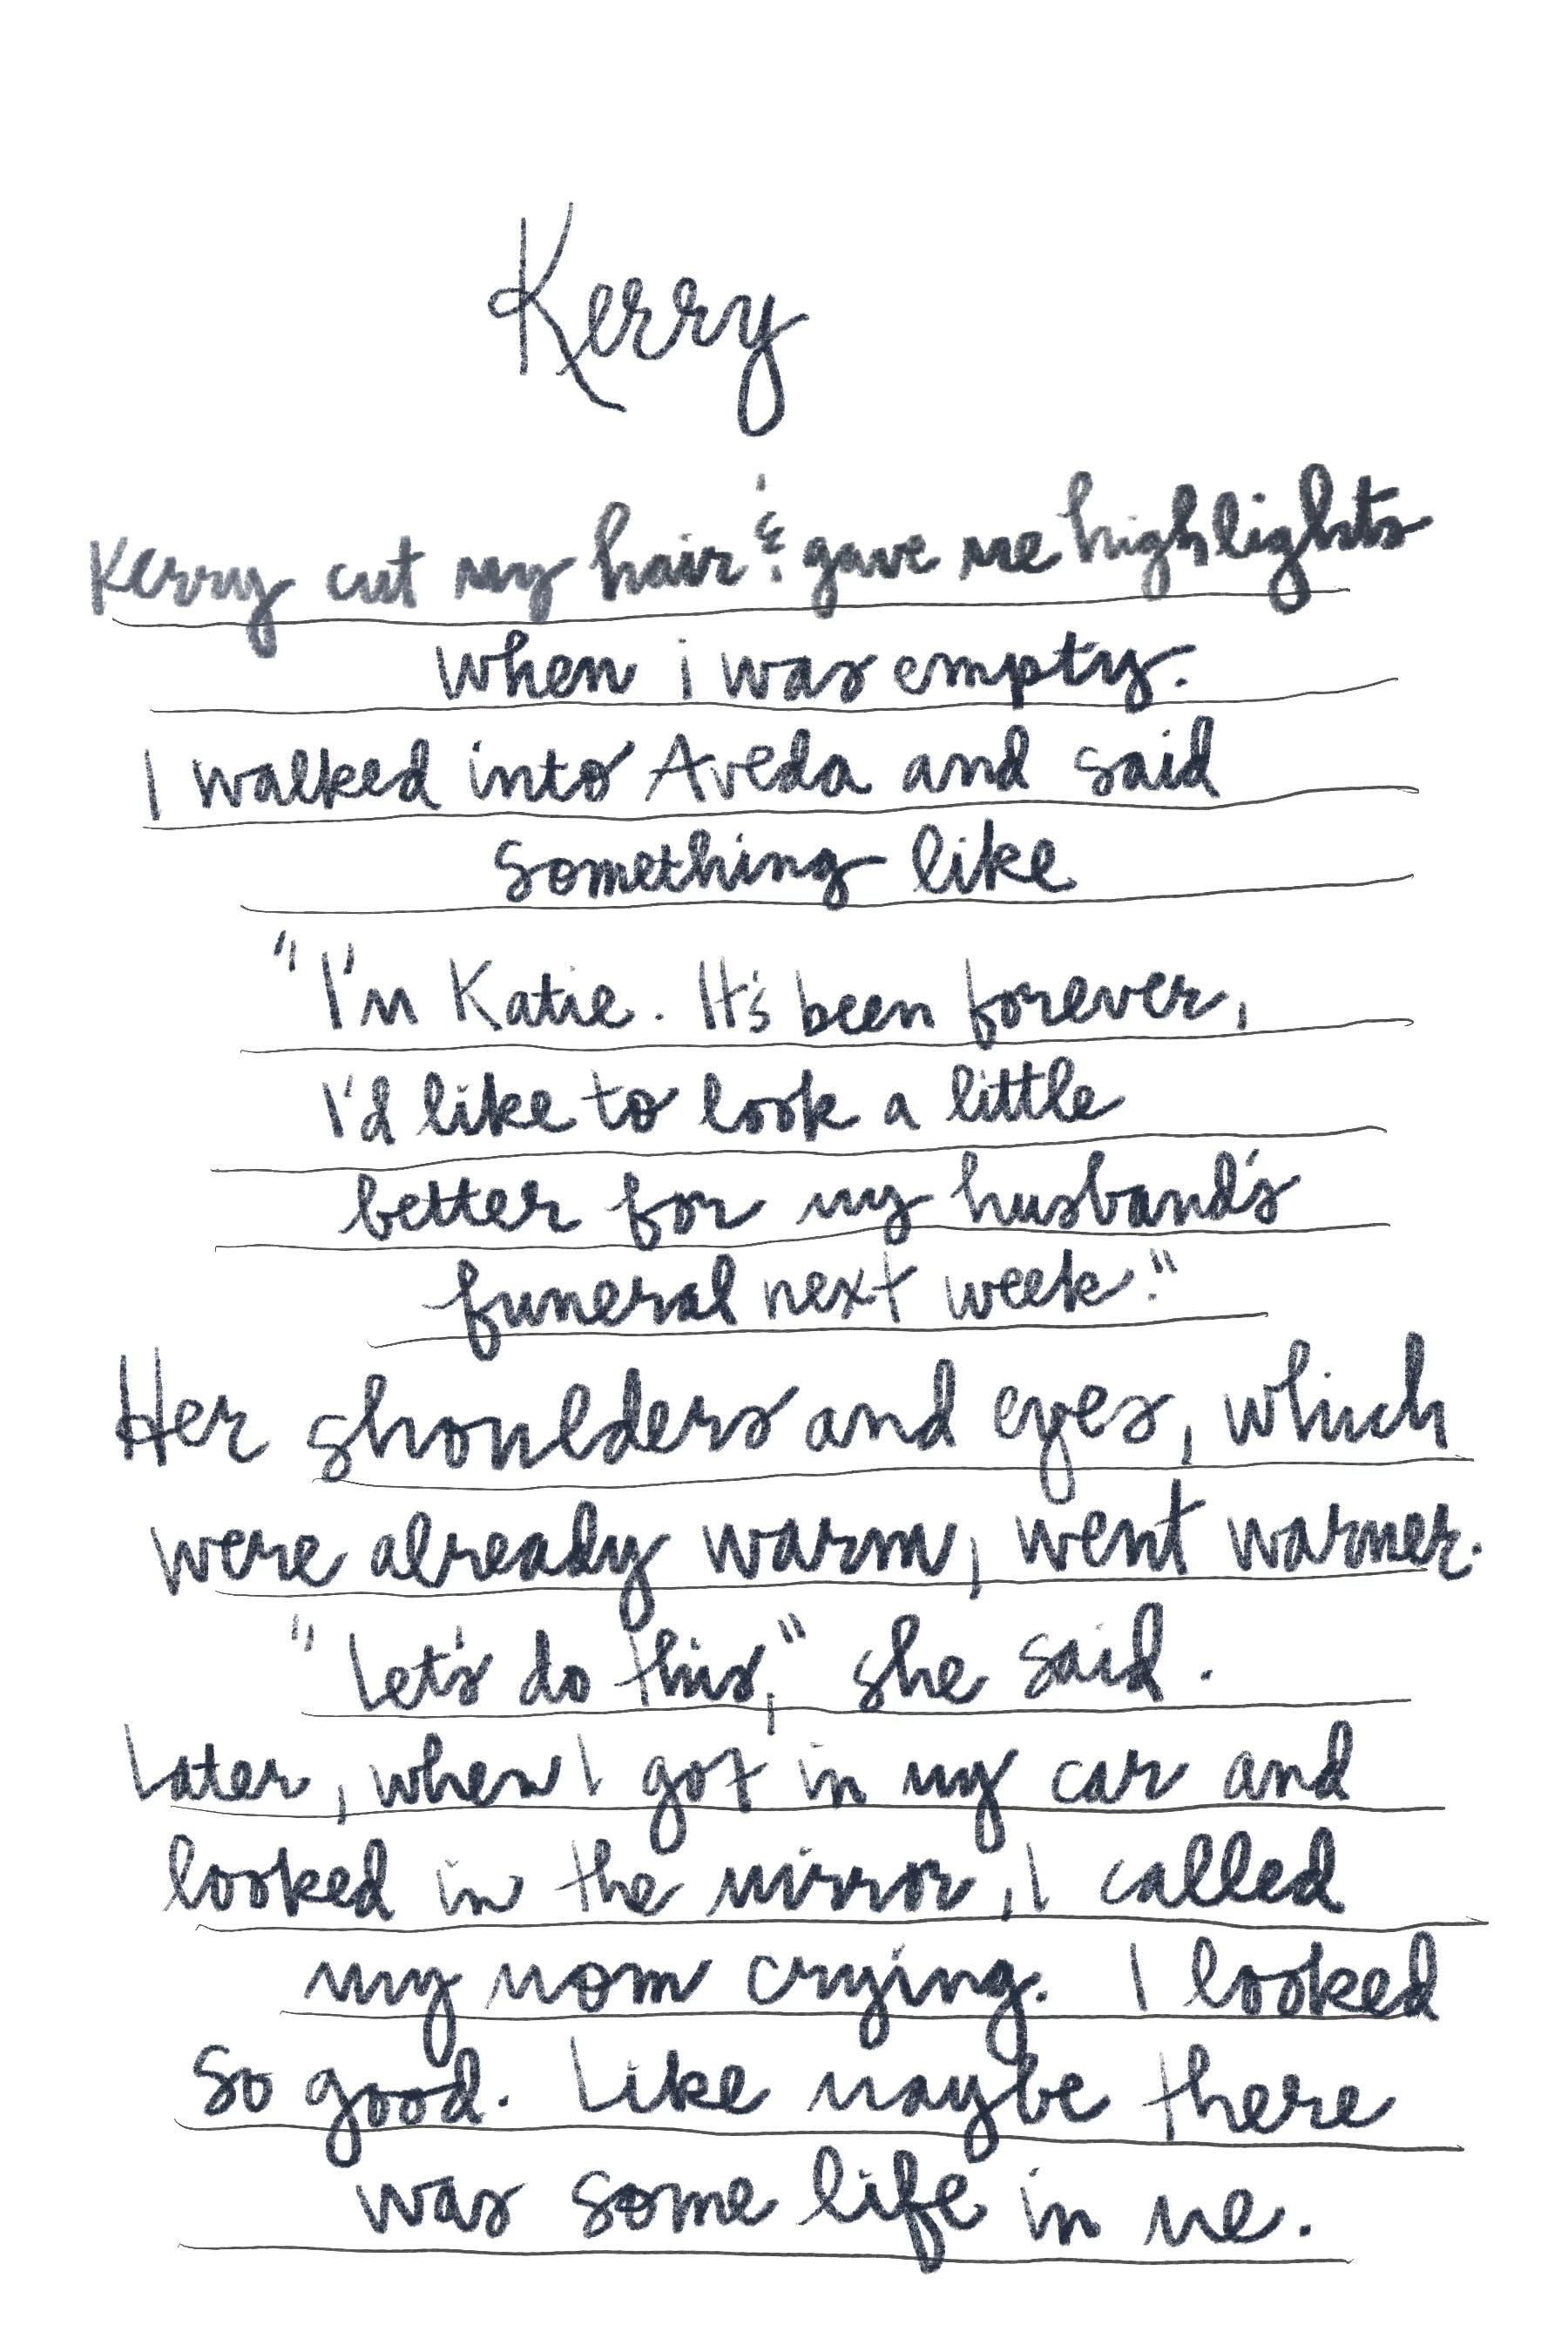 Kerry
Kerry cut my hair & gave me highlights
when i was empty.
I walked into Aveda and said
something like
"I'm Katie. It's been forever,
I'd like to look a little
better for my husband's
funeral next week."
Her shoulders and eyes, which
were already warm, went warmer.
"Let's do this," she said.
Later, when I got in my car and
looked in the mirror, I called
my mom crying. I looked
so good. Like maybe there
was some life in me.